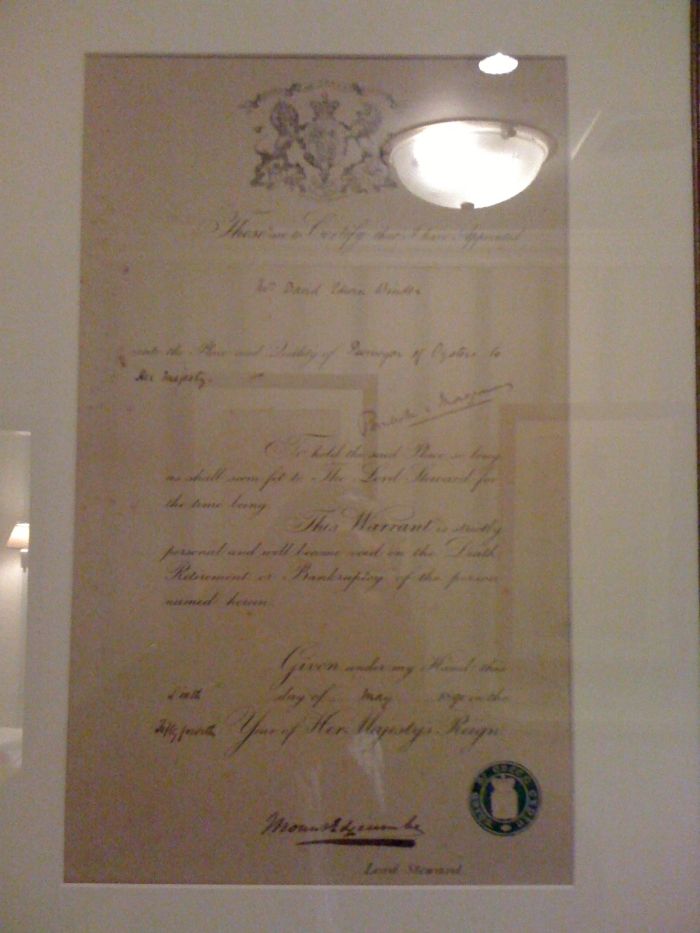 These are to Certify that I have Appointed
Mr David Edwin
unto the Place and Quality of Purveyor of Oysters to
Her Majesty.
To hold the said Place so long
as shall seem fit to The Lord Steward for
the time being
This Warrant is strictly
personal and will become void on the Death
Retirement or Bankruptcy of the person
named herein.
Given under my Hand this
day of May 1890 in the
Fifty fourth Year of Her Majesty's Reign
Mount Edgcumbe
Lord Steward